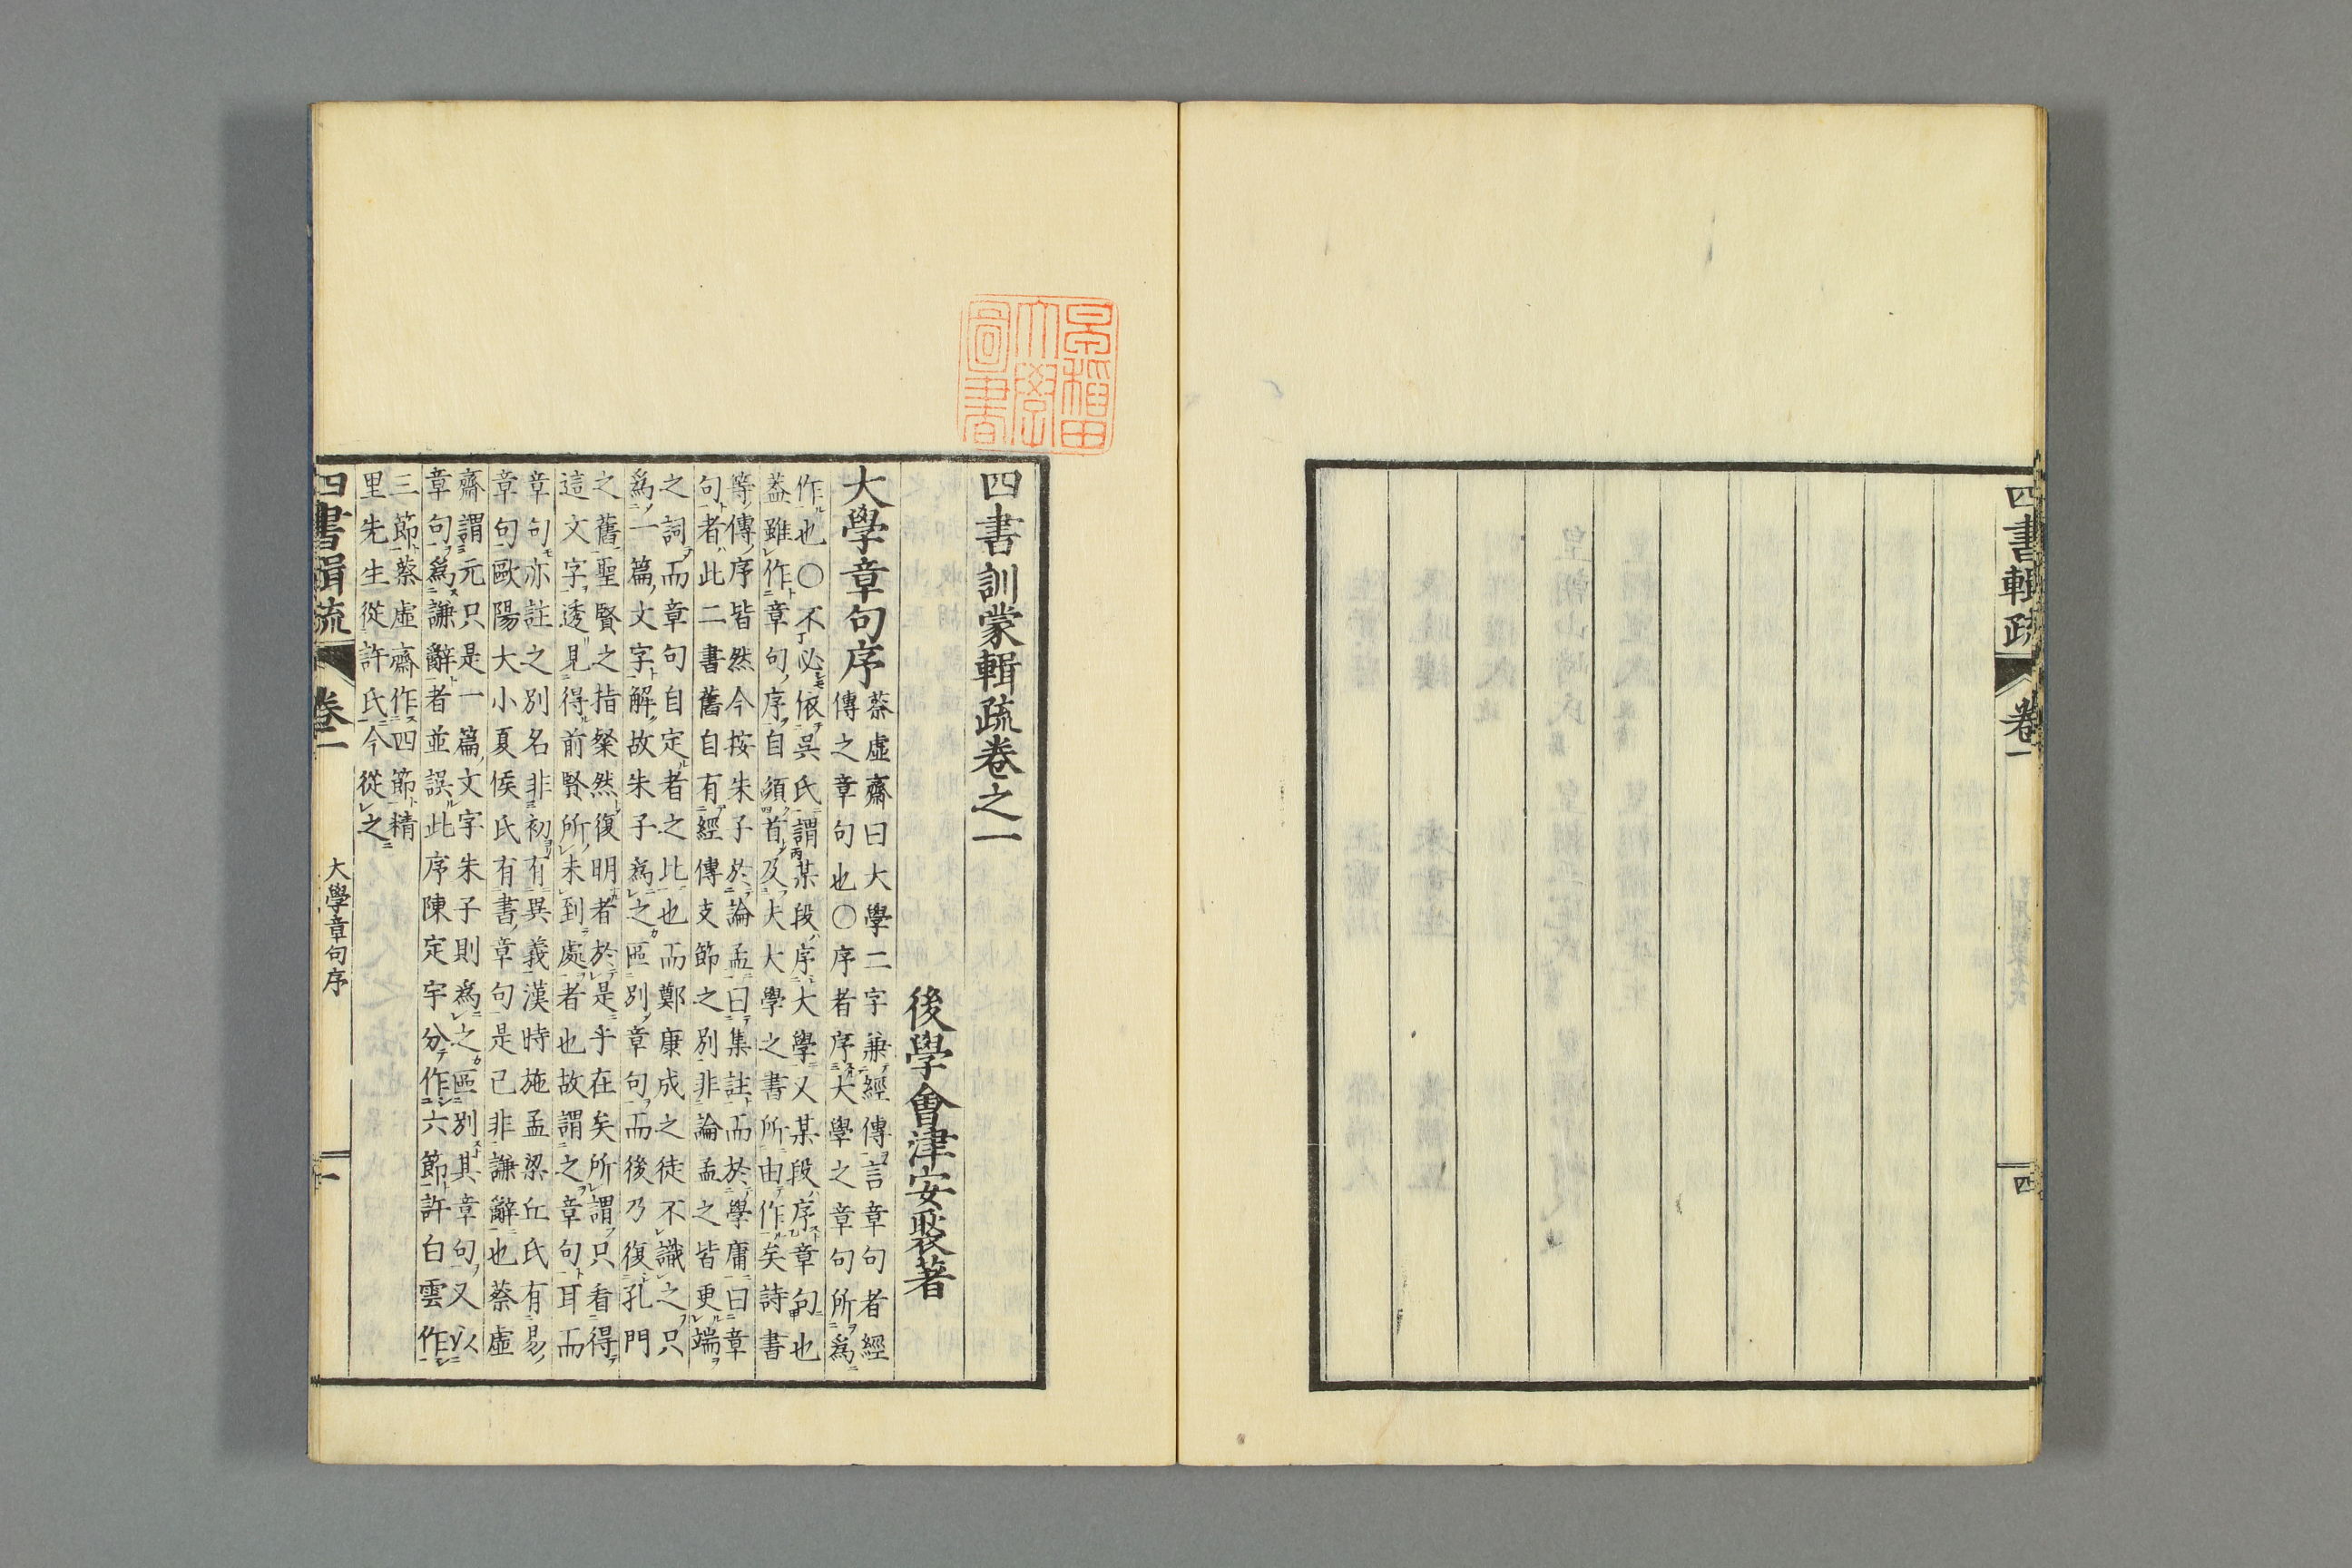 四書輯疏 卷一 四
早稲田
大學
圖書
四書訓蒙輯疏卷之一
後學會津安褧著
大學章句序
蔡虛齋曰大學二字兼經傳言章句者經
傳之章句也○序者序大學之章句所爲
作也○不必依吳氏謂某段序大學又某段序章句也
蓋雖作章句序自須首及大大學之書所由作矣詩書
等傳序皆然今按朱子於論孟曰集註而於學庸曰章
句者此二書舊自有經傳支節之別非論孟之皆更端
之詞而章句自定者之比也而鄭康成之徒不識之只
爲一篇文字解故朱子爲之區別章句而後乃復孔門
之舊聖賢之指粲然復明者於是乎在矣所謂只看得
這文字透見得前賢所未到處者也故謂之章句耳而
章句亦註之別名非初有異義漢時施孟梁丘氏有易
章句歐陽大小夏侯氏有書章句是已非謙辭也蔡虛
齋謂元只是一篇文字朱子則爲之區別其章句又以
章句爲謙辭者並誤此序陳定宇分作六節許白雲作
三節蔡虛齋作四節精
里先生從許氏今從之
四書輯疏 卷一 大學章句序 一